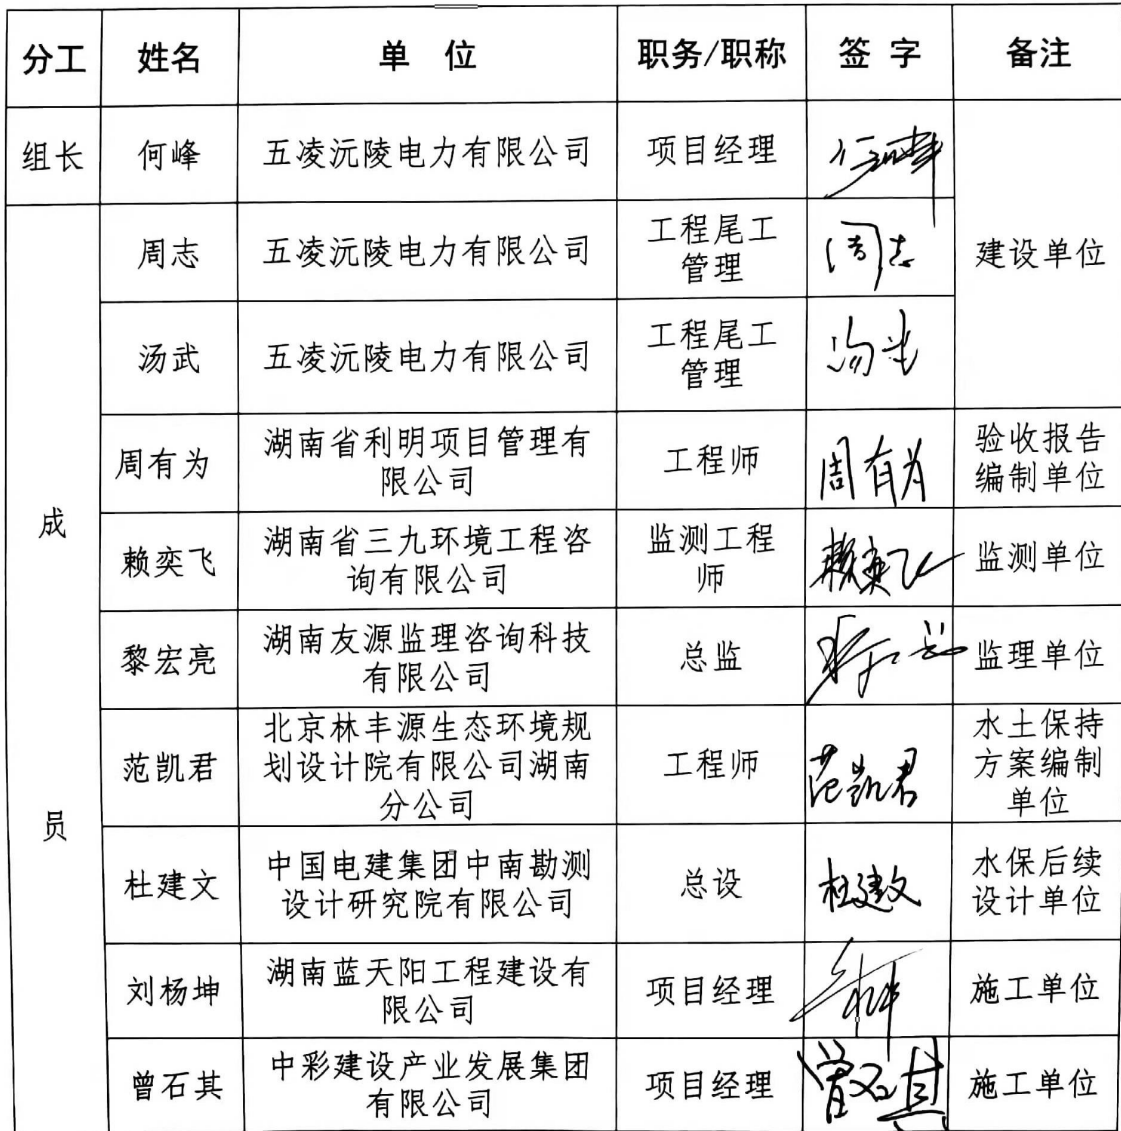 分工 姓名 单 位 职务/职称 签 字 备注
组长 何峰 五凌沅陵电力有限公司 项目经理
周志 五凌沅陵电力有限公司 工程尾工
管理 周志 建设单位
汤武 五凌沅陵电力有限公司 工程尾工
管理 汤武
成
员
周有为 湖南省利明项目管理有
限公司 工程师 周有为 验收报告
编制单位
赖奕飞 湖南省三九环境工程咨
询有限公司 监测工程
师 赖奕飞 监测单位
黎宏亮 湖南友源监理咨询科技
有限公司 总监 监理单位
范凯君 北京林丰源生态环境规
划设计院有限公司湖南
分公司 工程师 范凯君 水土保持
方案编制
单位
杜建文 中国电建集团中南勘测
设计研究院有限公司 总设 杜建文 水保后续
设计单位
刘杨坤 湖南蓝天阳工程建设有
限公司 项目经理 施工单位
曾石其 中彩建设产业发展集团
有限公司 项目经理 曾石其 施工单位